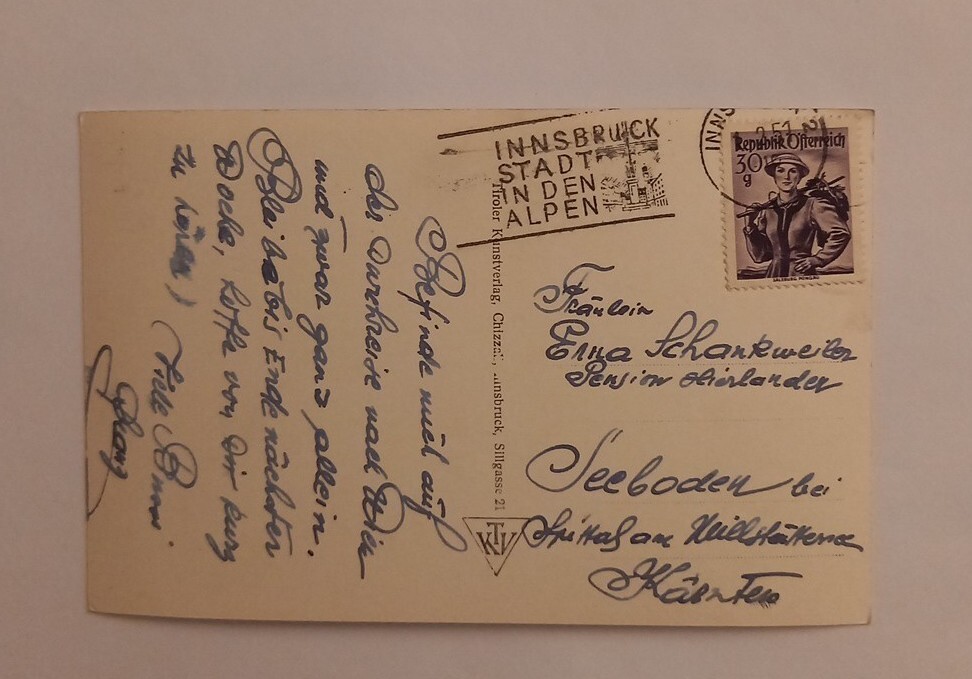 INNSBRUCK
STADT
IN DEN
ALPEN
INNS
Republik Österreich
30
g
SALZBURG, PONGAU
Fräulein
Erna Schankweiler
Pension
Seeboden bei
Spittal am Millstättersee
Kärnten
Tiroler Kunstverlag, Chizzali, Innsbruck, Sillgasse 21
TKV
Befinde mich auf
der Durchreise nach Wien
und zwar ganz allein.
Bleibe bis Ende nächster
Woche, hoffe von Dir kurz
zu hören! Viele